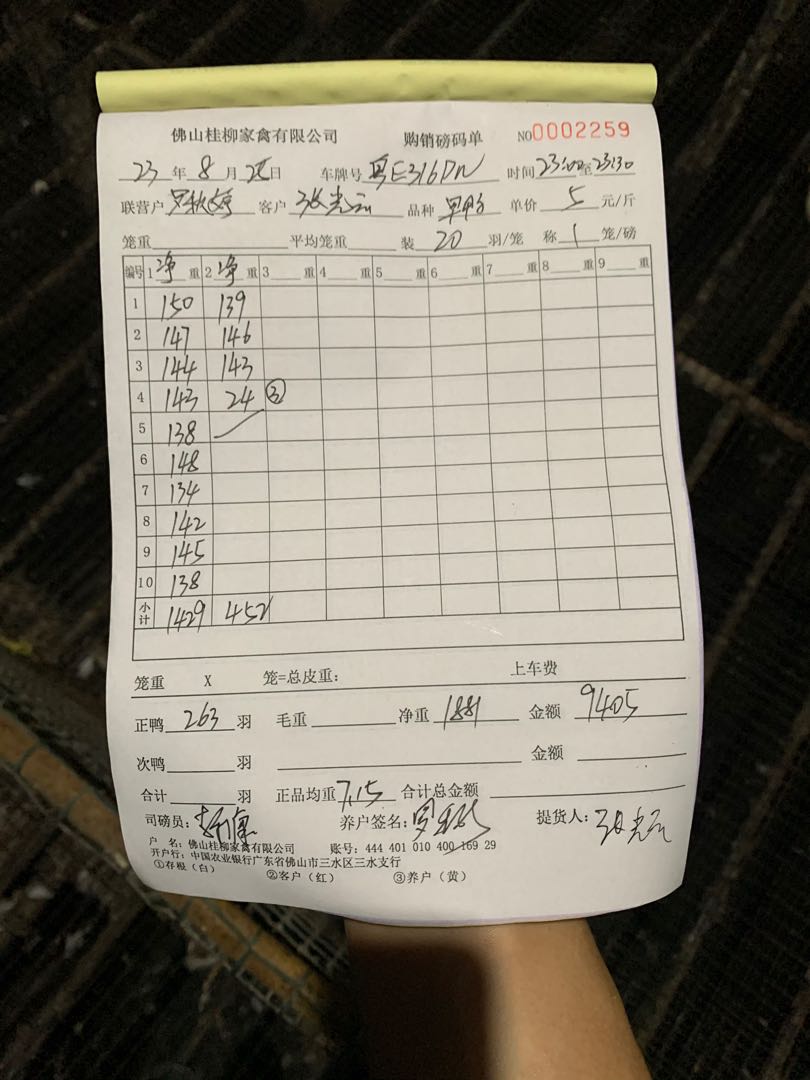 佛山桂柳家禽有限公司 购销磅码单 NO0002259
23年8月 日 车牌号 粤E316DN 时间23:00至23:30
联营户 罗秋 客户 张光云 品种 旱鸭 单价 5 元/斤
笼重 平均笼重 装 20 羽/笼 称 1 笼/磅
编号 1 净 重 2 净 重 3 重 4 重 5 重 6 重 7 重 8 重 9 重
1 150 139
2 147 146
3 144 143
4 143 24 ③
5 138
6 148
7 134
8 142
9 145
10 138
小计 1429 452
笼重 X 笼=总皮重: 上车费
正鸭 263 羽 毛重 净重 1881 金额 9405
次鸭 羽 金额
合计 羽 正品均重 7.15 合计总金额
司磅员: 养户签名: 提货人: 张光云
户 名: 佛山桂柳家禽有限公司 账号: 444 401 010 400 169 29
开户行: 中国农业银行广东省佛山市三水区三水支行
①存根(白) ②客户(红) ③养户(黄)